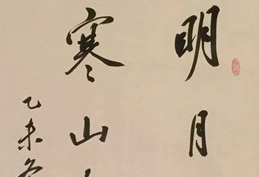 明月
寒山
乙未